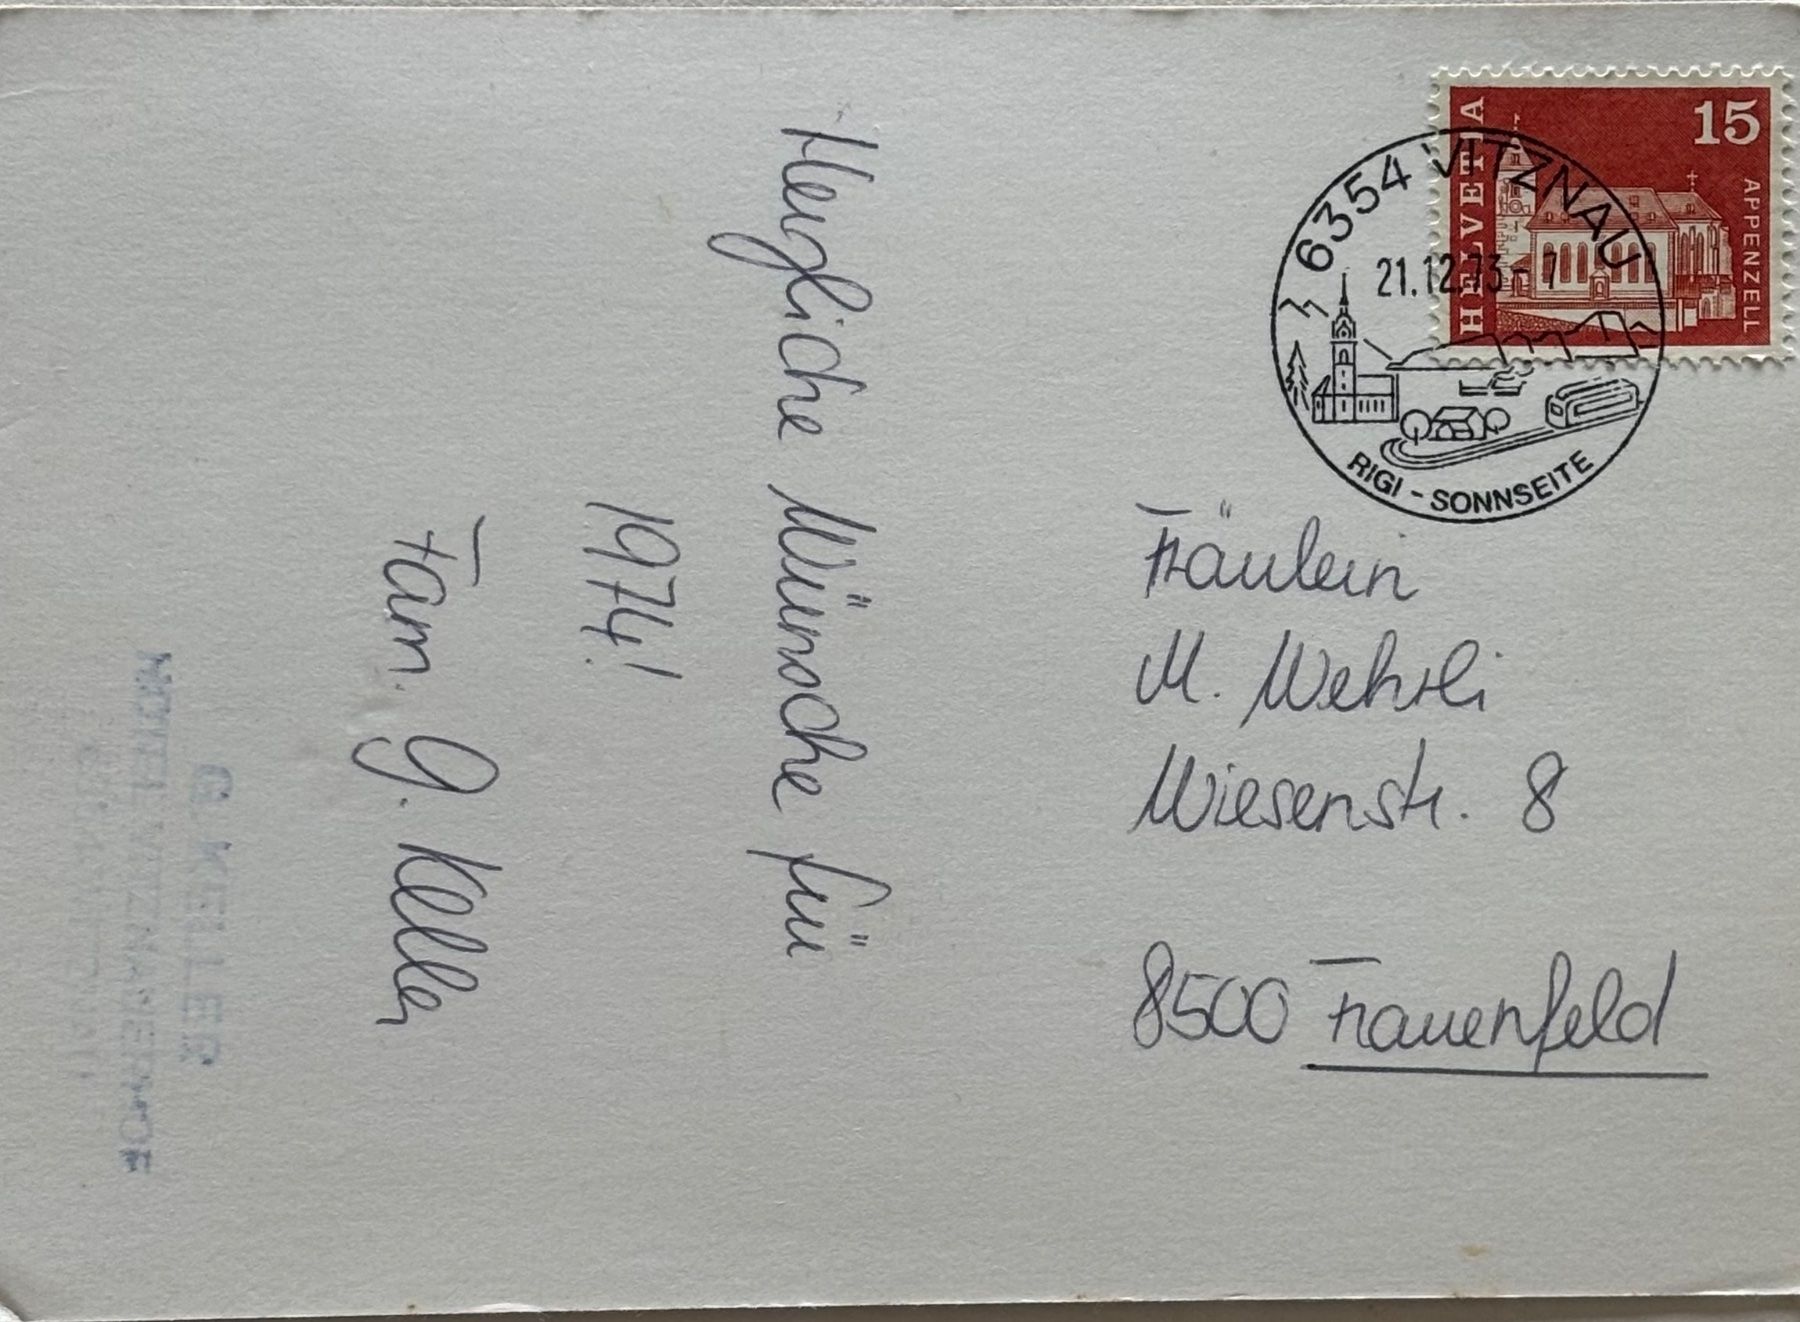 HELVETIA
15
APPENZELL
6354 VITZNAU
21.12.73-7
RIGI - SONNSEITE
Herzliche Wünsche für
1974!
Fam. G. Keller
Fräulein
M. Wehrli
Wiesenstr. 8
8500 Frauenfeld
G. KELLER